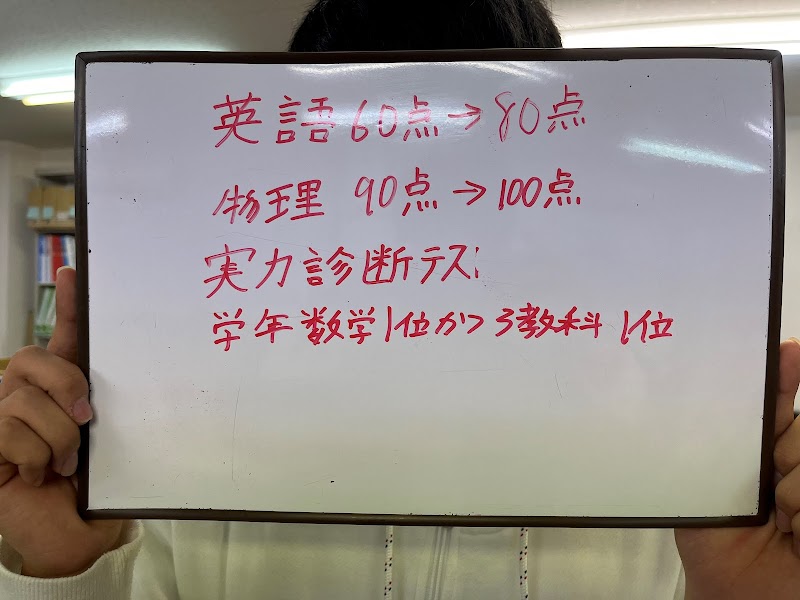 英語 60点→80点
物理 90点→100点
実力診断テスト
学年数学1位かつ3教科 1位